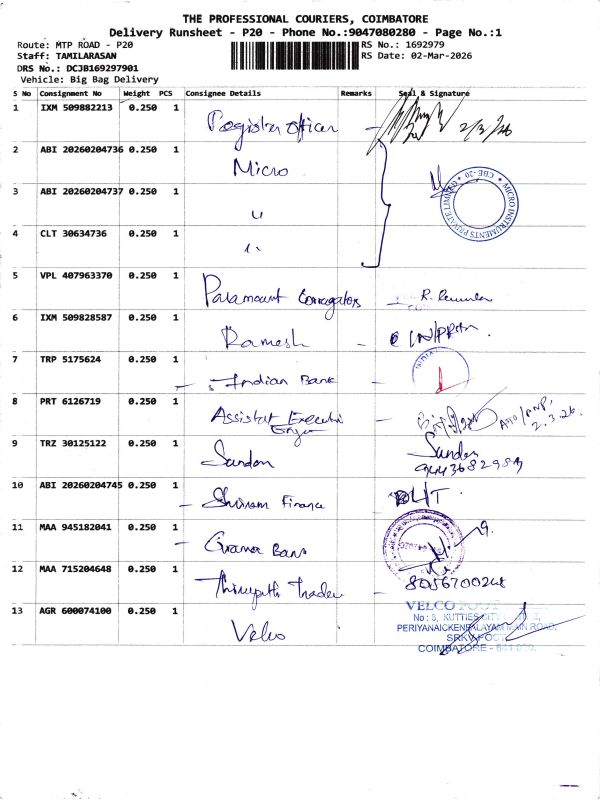 THE PROFESSIONAL COURIERS, COIMBATORE
Delivery Runsheet - P20 - Phone No.:9047080280 - Page No.:1
Route: MTP ROAD - P20
Staff: TAMILARASAN
DRS No.: DCJB169297901
Vehicle: Big Bag Delivery
RS No.: 1692979
RS Date: 02-Mar-2026
S No Consignment No Weight PCS Consignee Details Remarks Seal & Signature
1 IXM 509882213 0.250 1 Register officer 2/3/26
2 ABI 20260204736 0.250 1 Micro
3 ABI 20260204737 0.250 1 "
4 CLT 30634736 0.250 1 "
MICRO INSTRUMENTS PRIVATE LIMITED * CBE-20 *
5 VPL 407963370 0.250 1 Paramount Corrugators R.
6 IXM 509828587 0.250 1 Ramesh
7 TRP 5175624 0.250 1 - Indian Bank -
8 PRT 6126719 0.250 1 Assistant Executive Engr - 2.3.26.
9 TRZ 30125122 0.250 1 Sundar Sundar
10 ABI 20260204745 0.250 1 - Shriram Finance -
11 MAA 945182041 0.250 1 - Grama Bank
12 MAA 715204648 0.250 1 Thirupathi Trader -
13 AGR 600074100 0.250 1 Velco
VELCO
No: 8, KUTTIES
PERIYANAICKENPALAYAM MAIN ROAD,
SRKV POST
COIMBATORE - 641 020.